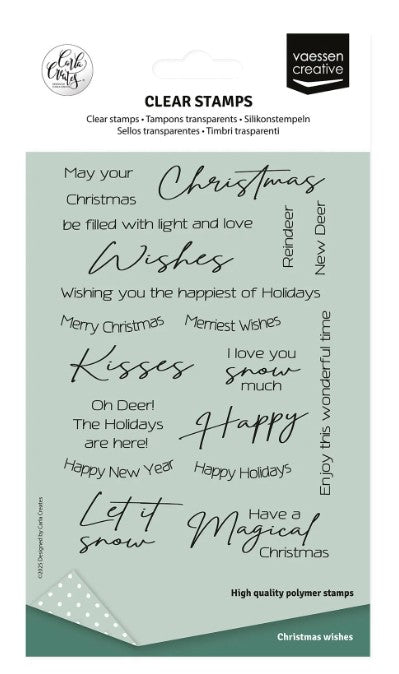 Carla Creates
vaessen
creative
CLEAR STAMPS
Clear stamps • Tampons transparents • Silikonstempeln
Sellos transparentes • Timbri trasparenti
May your
Christmas
Christmas
be filled with light and love
Reindeer
New Deer
Wishes
Wishing you the happiest of Holidays
Merry Christmas
Merriest Wishes
Kisses
I love you
snow
much
Enjoy this wonderful time
Oh Deer!
The Holidays
are here!
Happy
Happy New Year
Happy Holidays
Let it
snow
Have a
Magical
Christmas
©2025 Designed by Carla Creates
High quality polymer stamps
Christmas wishes